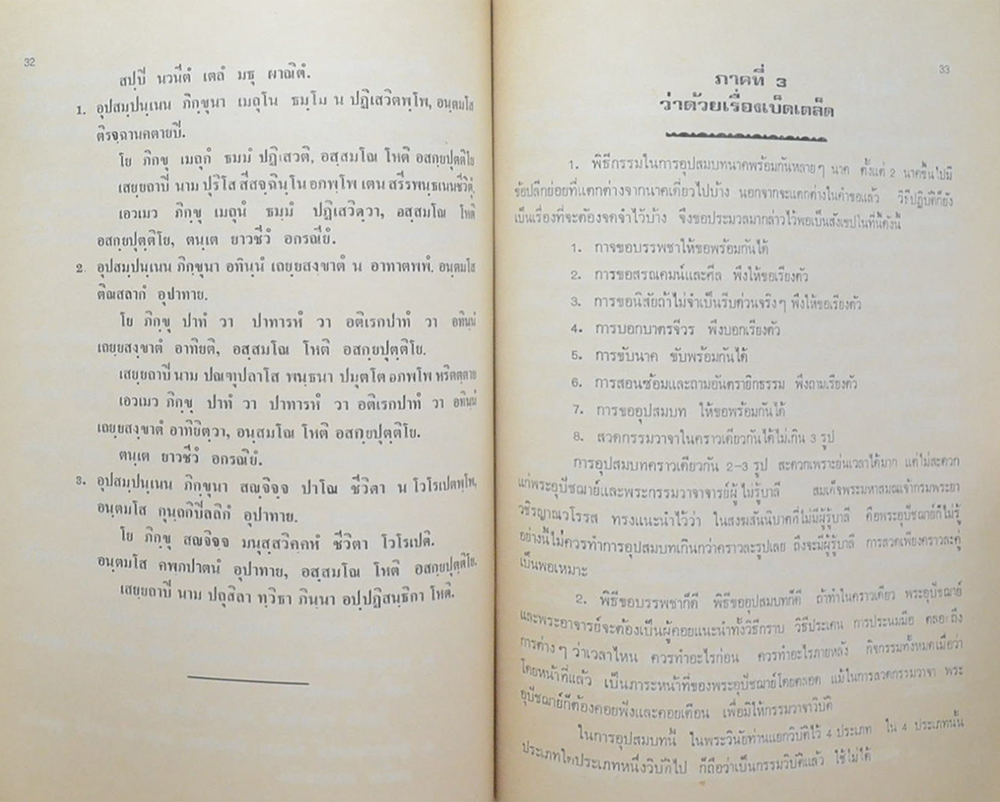 32
สปฺปี นวนีตํ เตลํ มธุ ผาณิตํ.
1. อุปสมฺปนฺเนน ภิกฺขุนา เมถุโน ธมฺโม น ปฏิเสวิตพฺโพ, อนฺตมโส
ติรจฺฉานคตายปี.
โย ภิกฺขุ เมถุกํ ธมฺมํ ปฏิเสวติ, อสฺสมโณ โหติ อสกฺยปุตฺติโย
เสยฺยถาปี นาม ปุริโส สีสจฺฉินฺโน อภพฺโพ เตน สรีรพนฺธเนนชีวิตุํ,
เอวเมว ภิกฺขุ เมถุนํ ธมฺมํ ปฏิเสวิตฺวา, อสฺสมโณ โหติ
อสกฺยปุตฺติโย, ตนฺเต ยาวชีวํ อกรณียํ.
2. อุปสมฺปนฺเนน ภิกฺขุนา อทินฺนํ เถยฺยสงฺขาตํ น อาทาตพพํ. อนฺตมโส
ติณสลากํ อุปาทาย.
โย ภิกฺขุ ปาทํ วา ปาทารหํ วา อติเรกปาทํ วา อทินฺนํ
เถยฺยสงฺขาตํ อาทิยติ, อสฺสมโณ โหติ อสกฺยปุตฺติโย.
เสยฺยถาปี นาม ปณฺฑุปลาโส พนฺธนา ปมุตฺโต อภพฺโพ หริตตฺตาย
เอวเมว ภิกฺขุ ปาทํ วา ปาทารหํ วา อติเรกปาทํ วา อทินฺนํ
เถยฺยสงฺขาตํ อาทิยิตฺวา, อนฺสมโณ โหติ อสกฺยปุตฺติโย.
ตนฺเต ยาวชีวํ อกรณียํ.
3. อุปสมฺปนฺเนน ภิกฺขุนา สญฺจิจฺจ ปาโณ ชีวิตา น โวโรเปตพฺโพ,
อนฺตมโส กุนฺถกิปีลลิกํ อุปาทาย.
โย ภิกฺขุ สญฺจิจฺจ มนุสฺสวิคฺคหํ ชีวิตา โวโรเปติ.
อนฺตมโส คพภปาตนํ อุปาทาย, อสฺสมโณ โหติ อสกฺยปุตฺติโย.
เสยฺยถาปี นาม ปถุสิลา ทฺวิธา ภินฺนา อปฺปฏิสนฺธิกา โหติ.
33
ภาคที่ 3
ว่าด้วยเรื่องเบ็ดเตล็ด
1. พิธีกรรมในการอุปสมบทนาคพร้อมกันหลายๆ นาค ตั้งแต่ 2 นาคขึ้นไปมี
ข้อปลีกย่อยที่แตกต่างจากนาคเดี่ยวไปบ้าง นอกจากจะแตกต่างในคำขอแล้ว วิธีปฏิบัติก็ยัง
เป็นเรื่องที่จะต้องจดจำไว้บ้าง จึงขอประมวลมากล่าวไว้พอเป็นสังเขปในที่นี้ดังนี้
1. กาจขอบรรพชาให้ขอพร้อมกันได้
2. การขอสรณคมน์และศีล พึงให้ขอเรียงตัว
3. การขอนิสัยถ้าไม่จำเป็นรีบด่วนจริงๆ พึงให้ขอเรียงตัว
4. การบอกบาตรจีวร พึงบอกเรียงตัว
5. การขับนาค ขับพร้อมกันได้
6. การสอนซ้อมและถามอันตรายิกธรรม พึงถามเรียงตัว
7. การขออุปสมบท ให้ขอพร้อมกันได้
8. สวดกรรมวาจาในคราวเดียวกันได้ไม่เกิน 3 รูป
การอุปสมบทคราวเดียวกัน 2-3 รูป สะดวกเพราะย่นเวลาได้มาก แต่ไม่สะดวก
แก่พระอุปัชฌาย์และพระกรรมวาจาจารย์ผู้ไม่รู้บาลี สมเด็จพระมหาสมณเจ้ากรมพระยา
วชิรญาณวโรรส ทรงแนะนำไว้ว่า ในสงฆสันนิบาตที่ไม่มีผู้รู้บาลี คือพระอุปัชฌาย์ก็ไม่รู้
อย่างนี้ไม่ควรทำการอุปสมบทเกินกว่าคราวละรูปเลย ถึงจะมีผู้รู้บาลี การสวดเพียงคราวละคู่
เป็นพอเหมาะ
2. พิธีขอบรรพชาก็ดี พิธีขออุปสมบทก็ดี ถ้าทำในคราวเดียว พระอุปัชฌาย์
และพระอาจารย์จะต้องเป็นผู้คอยแนะนำทั้งวิธีกราบ วิธีประเคน การประนมมือ ตลอดถึง
การต่างๆ ว่าเวลาไหน ควรทำอะไรก่อน ควรทำอะไรภายหลัง กิจกรรมทั้งหมดเมื่อว่า
โดยหน้าที่แล้ว เป็นภาระหน้าที่ของพระอุปัชฌาย์โดยตลอด แม้ในการสวดกรรมวาจา พระ
อุปัชฌาย์ก็ต้องคอยฟังและคอยเตือน เพื่อมิให้กรรมวาจาวิบัติ
ในการอุปสมบทนี้ ในพระวินัยท่านแยกวิบัติไว้ 4 ประเภท ใน 4 ประเภทนั้น
ประเภทใดประเภทหนึ่งวิบัติไป ก็ถือว่าเป็นกรรมวิบัติแล้ว ใช้ไม่ได้